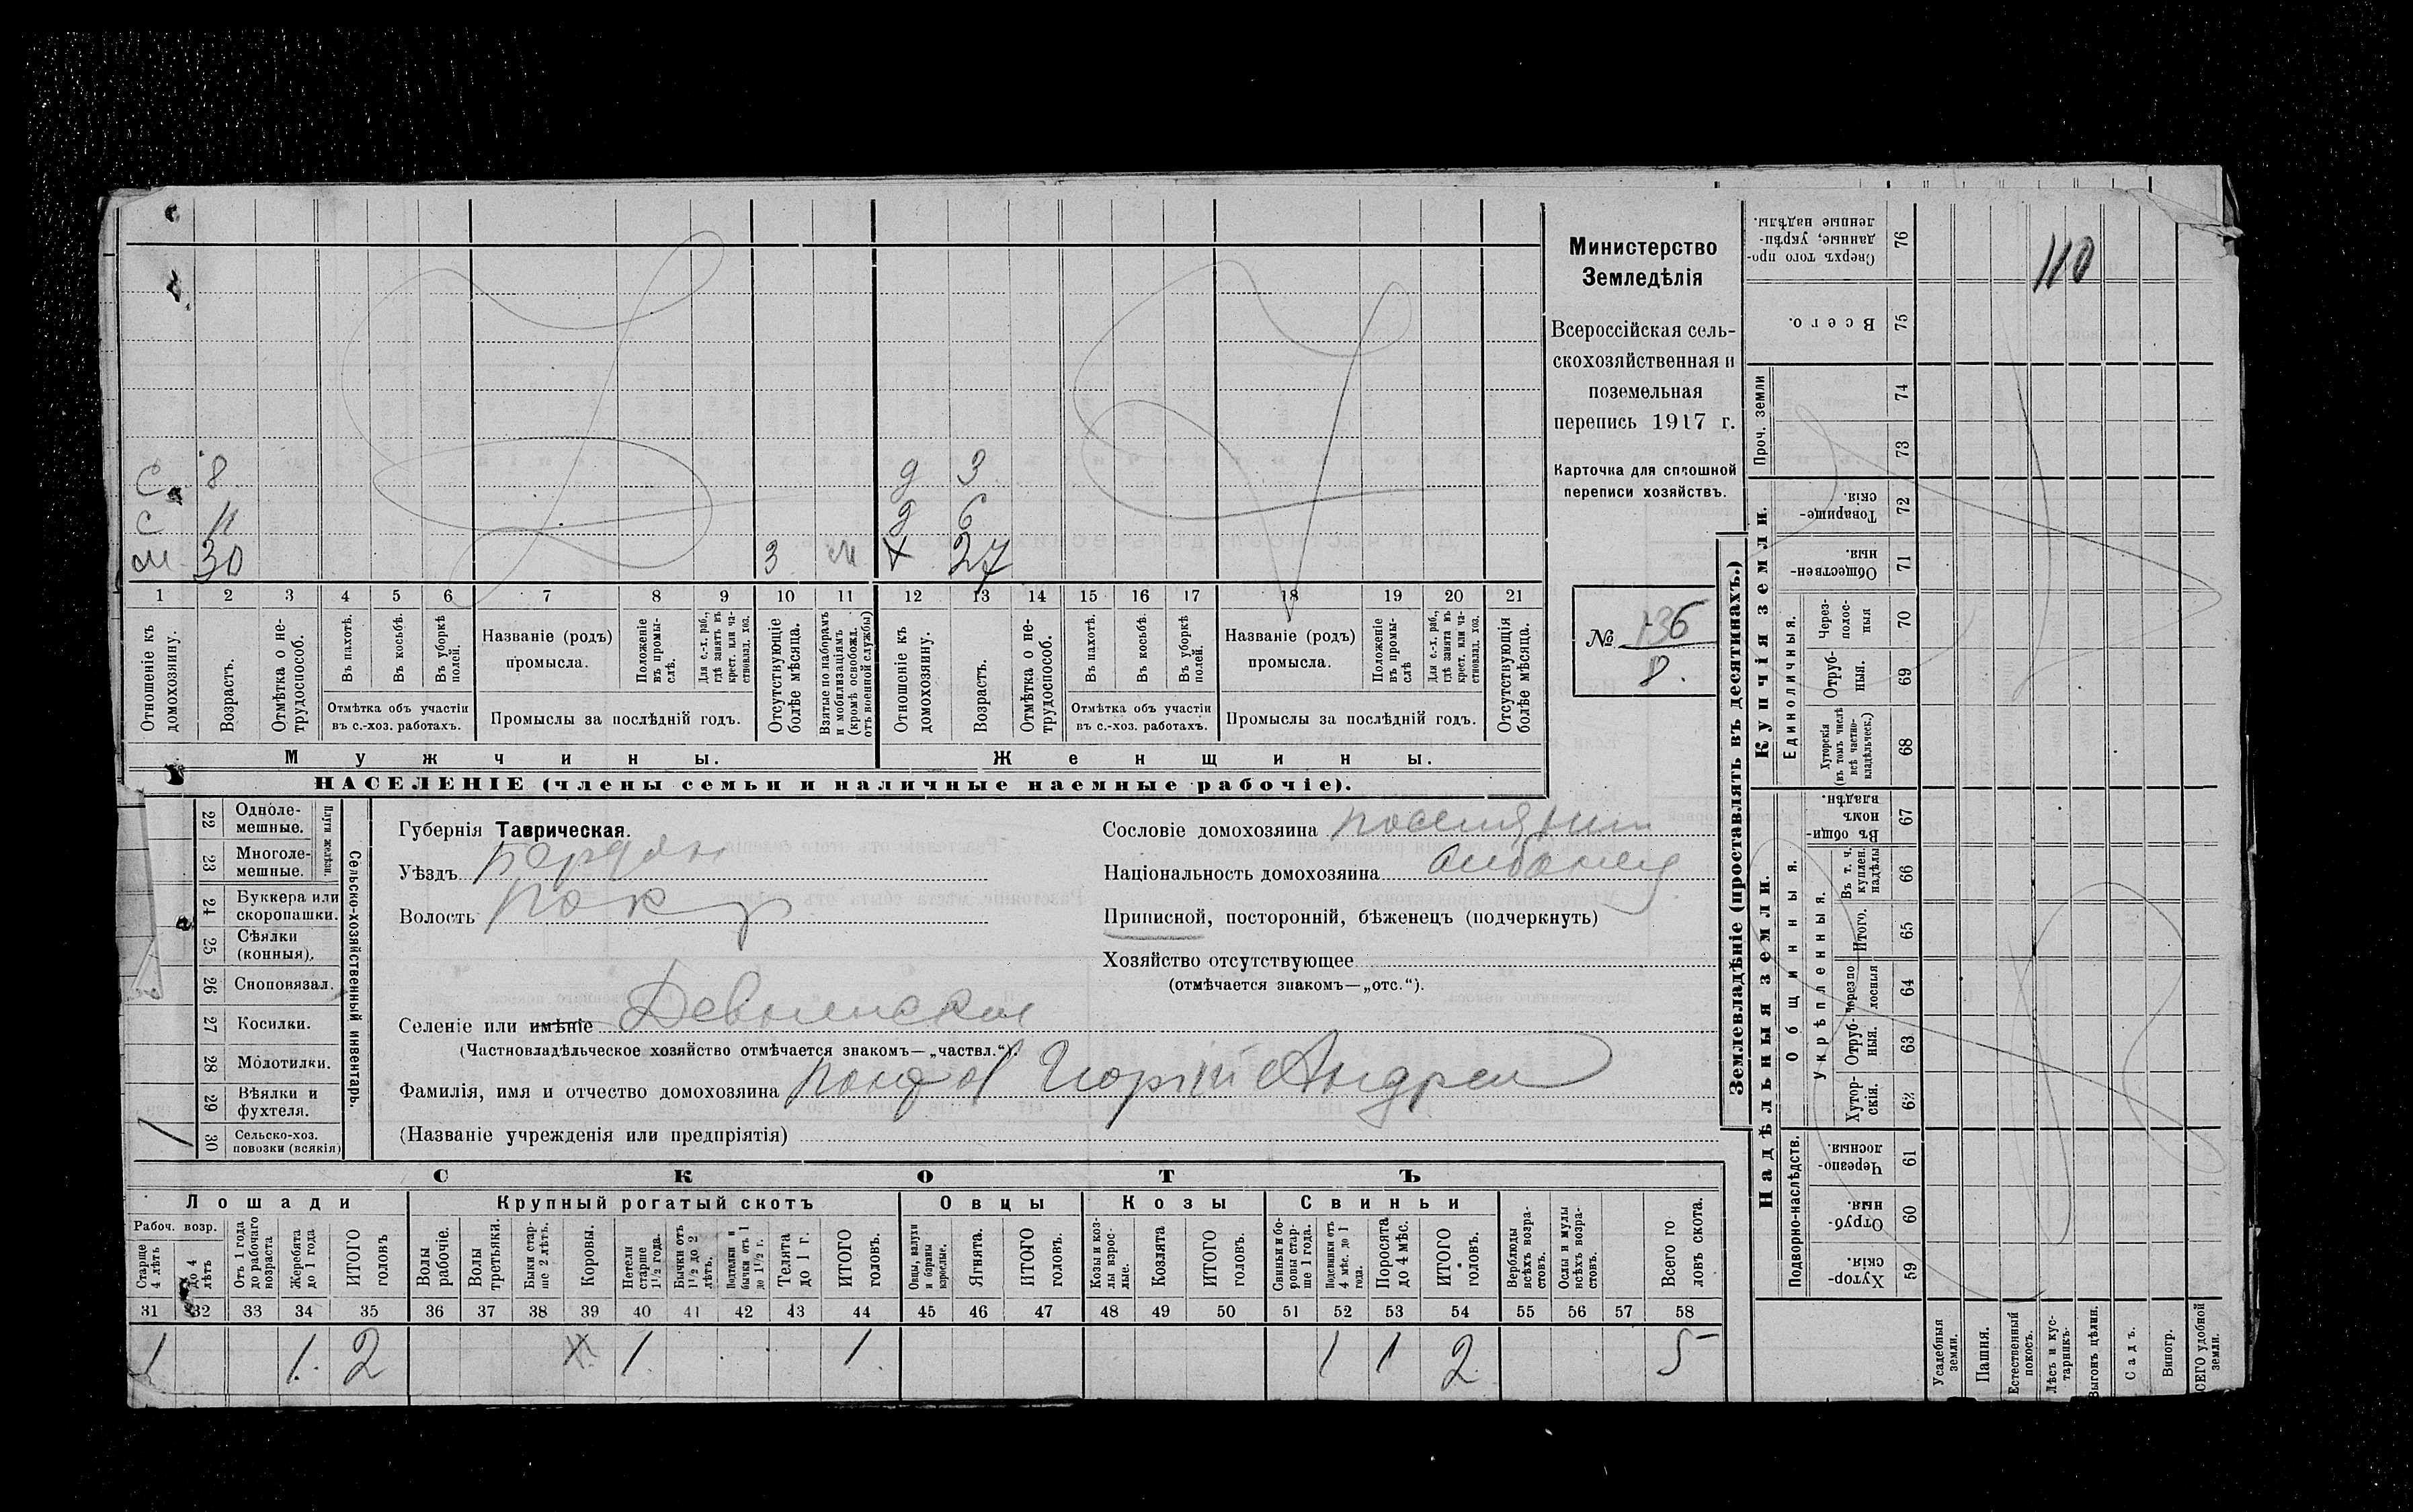 с 8 д 3
с 11 д 6
м 30 3 м х 27
1 2 3 4 5 6 7 8 9 10 11 12 13 14 15 16 17 18 19 20 21
Отношеніе къ домохозяину.
Возрастъ.
Отмѣтка о не-трудоспособ.
Въ пахотѣ.
Въ косьбѣ.
Въ уборкѣ полей.
Отмѣтка объ участіи
въ с.-хоз. работахъ.
Названіе (родъ)
промысла.
Положеніе въ промы-слѣ.
Для с.-х. раб., гдѣ занятъ въ крест. или ча-стновлад. хоз.
Промыслы за послѣдній годъ.
Отсутствующіе болѣе мѣсяца.
Взятые по наборамъ и мобилизаціямъ (кромѣ освобожд. отъ военной службы)
Отношеніе къ домохозяину.
Возрастъ.
Отмѣтка о не-трудоспособ.
Въ пахотѣ.
Въ косьбѣ.
Въ уборкѣ полей.
Отмѣтка объ участіи
въ с.-хоз. работахъ.
Названіе (родъ)
промысла.
Положеніе въ промы-слѣ
Для с.-х. раб., гдѣ занята въ крест. или ча-стновлад. хоз.
Промыслы за послѣдній годъ.
Отсутствующія болѣе мѣсяца.
Мужчины. Женщины.
НАСЕЛЕНІЕ (члены семьи и наличные наемные рабочіе).
Министерство
Земледѣлія
Всероссійская сель-
скохозяйственная и
поземельная
перепись 1917 г.
Карточка для сплошной
переписи хозяйствъ.
№ 136
8.
Сельско-хозяйственный инвентарь.
Плуги желѣзн.
22 Одноле-мешные.
23 Многоле-мешные.
24 Буккера или скоропашки.
25 Сѣялки (конныя).
26 Сноповязал.
27 Косилки.
28 Молотилки.
29 Вѣялки и фухтеля.
30 Сельско-хоз. повозки (всякія) 1
Губернія Таврическая.
Уѣздъ Бердян
Волость Покр
Селеніе или имѣніе Девнинское
(Частновладѣльческое хозяйство отмѣчается знакомъ—„частвл.“).
Фамилія, имя и отчество домохозяина Георгій Андреи
(Названіе учрежденія или предпріятія)
Сословіе домохозяина поселянин
Національность домохозяина албанец
Приписной, посторонній, бѣженецъ (подчеркнуть)
Хозяйство отсутствующее
(отмѣчается знакомъ—„отс.“).
СКОТЪ
Лошади Крупный рогатый скотъ Овцы Козы Свиньи
Рабоч. возр.
Старше 4 лѣтъ
До 4 лѣтъ
Отъ 1 года до рабочаго возраста
Жеребята до 1 года
ИТОГО головъ
Волы рабочіе.
Волы третьяки.
Быки стар-ше 2 лѣтъ.
Коровы.
Нетели старше 1 1/2 года.
Бычки отъ 1 1/2 до 2 лѣтъ.
Подтелки и бычки отъ 1 до 1 1/2 г.
Телята до 1 г.
ИТОГО головъ.
Овцы, валухи и бараны взрослые.
Ягнята.
ИТОГО головъ.
Козы и коз-лы взрос-лые.
Козлята
ИТОГО головъ.
Свиньи и бо-ровы стар-ше 1 года.
Подсвинки отъ 4 мѣс. до 1 года.
Поросята до 4 мѣс.
ИТОГО головъ.
Верблюды всѣхъ возра-стовъ.
Ослы и мулы всѣхъ возра-стовъ.
Всего го ловъ скота.
31 32 33 34 35 36 37 38 39 40 41 42 43 44 45 46 47 48 49 50 51 52 53 54 55 56 57 58
1 1. 2 1. 1. 1 1 2 5
Землевладѣніе (проставлять въ десятинахъ.)
110
Сверхъ того про-данные, укрѣп-ленные надѣлы. 76
Всего. 75
Проч. земли 74
73
Купчія земли.
Товарище-скія. 72
Обществен-ныя. 71
Единоличныя.
Через-полос-ныя 70
Отруб-ныя. 69
Хуторскія (въ томъ числѣ всѣ частно-владѣльческ.) 68
Надѣльныя земли.
Общинныя.
Въ общи-номъ владѣн. 67
Укрѣпленныя.
Въ т. ч. куплен. надѣлы 66
Итого. 65
Черезпо лосныя 64
Отруб-ныя. 63
Хутор-скія. 62
Подворно-наслѣдств.
Черезпо-лосныя. 61
Отруб-ныя. 60
Хутор-скія. 59
Усадебныя земли.
Пашня.
Естественный покосъ.
Лѣсъ и кус-тарникъ.
Выгонъ цѣлин.
Садъ.
Виногр.
ВСЕГО удобной земли.